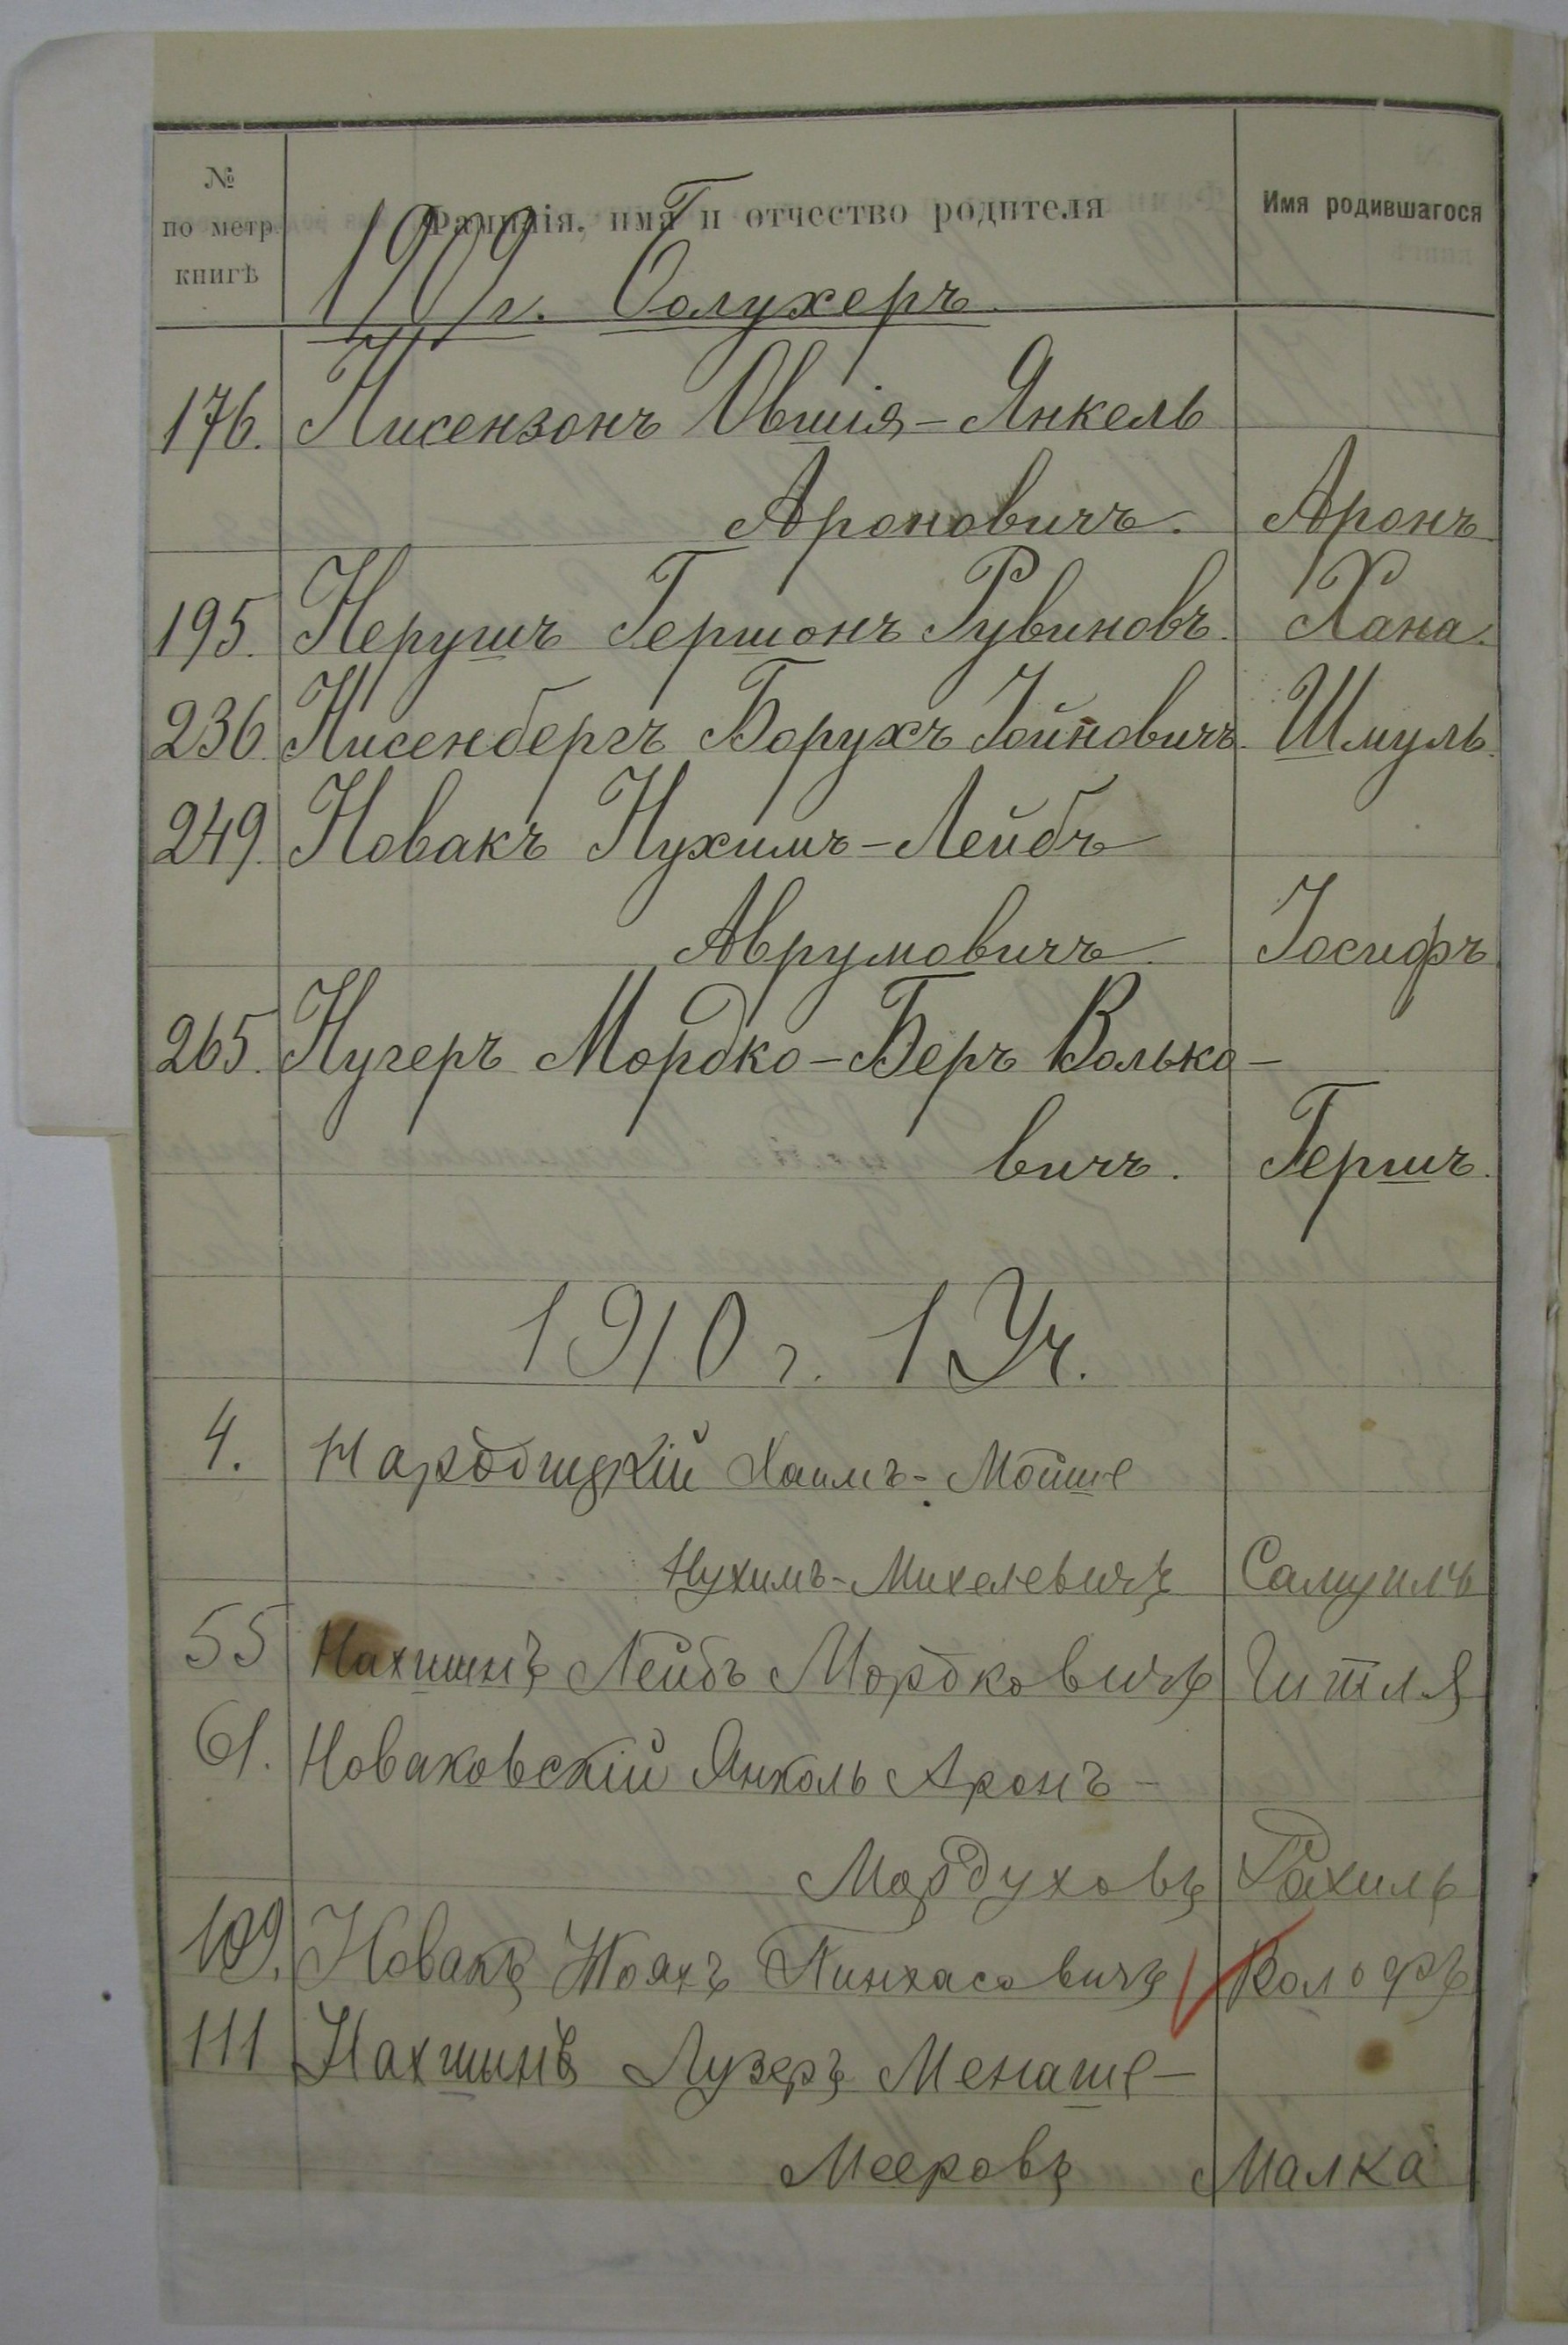 № по метр. книгѣ Фамилія, имя и отчество родителя Имя родившагося
1909 г. Солухеръ
176. Нисензонъ Овшія-Янкель
Ароновичъ. Аронъ.
195. Нерушъ Гершонъ Рувиновъ. Хана.
236. Нисенбергъ Борухъ Іойновичъ. Шмуль.
249. Новакъ Нухимъ-Лейбъ
Аврумовичъ. Іосифъ.
265. Нугеръ Мордко-Беръ Волько-
вичъ. Гершъ.
1910 г. 1 Уч.
4. Народицкій Хаимъ-Мойше
Нухимъ-Михелевичъ Самуилъ
55 Нахшинъ Лейбъ Мордковичъ Гитля
61. Новаковскій Янколь Аронъ-
Мордуховъ Рахиль
109. Новакъ Пинхасовичъ
111 Нахшинъ Лузеръ Менаше-
Мееровъ Малка